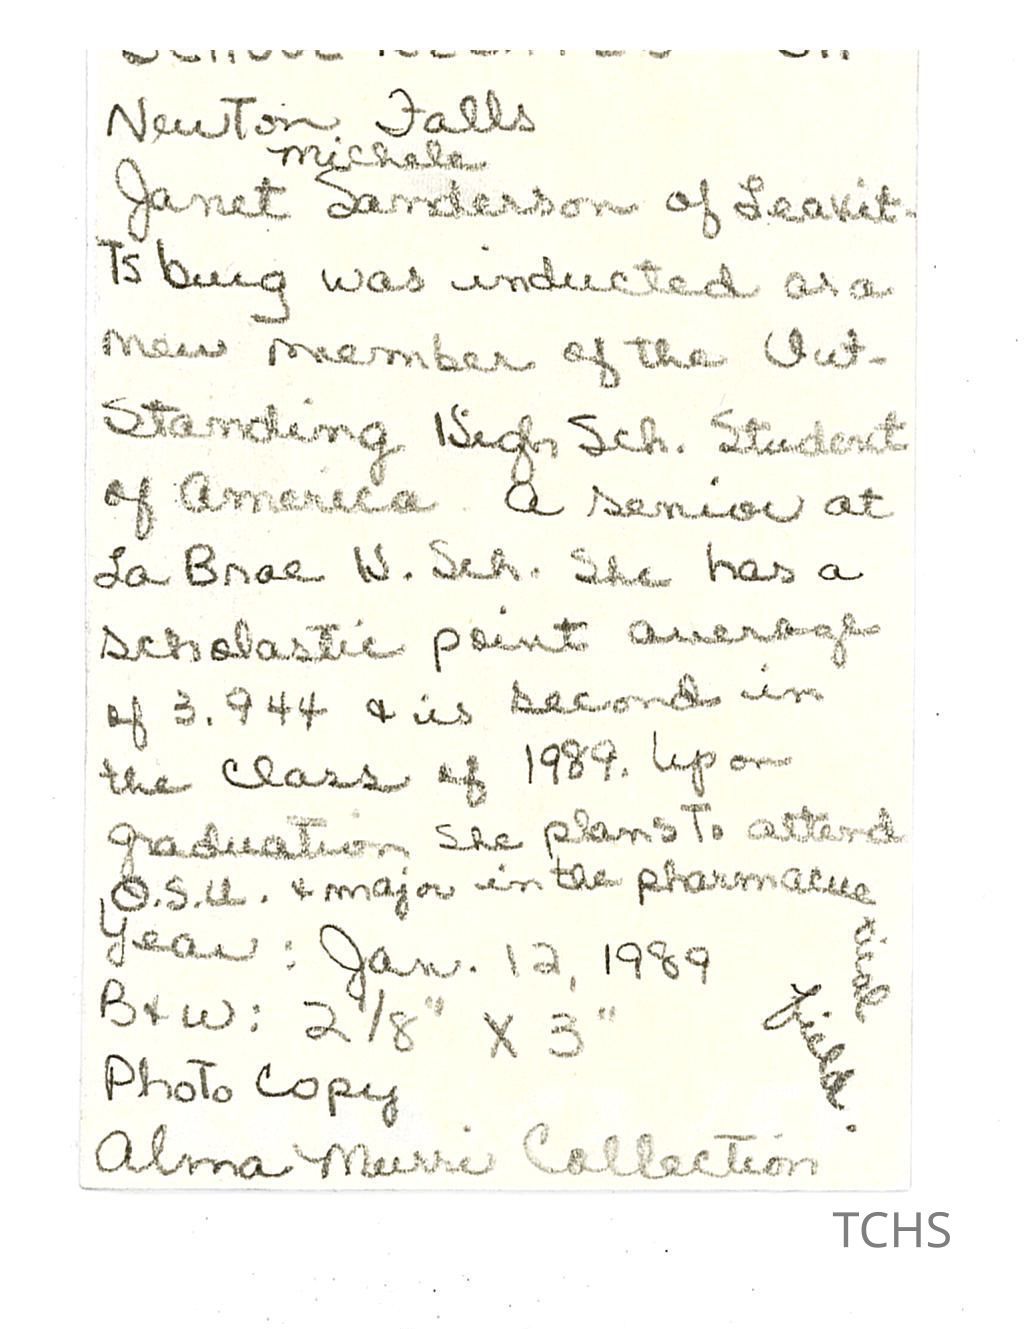 Newton Falls
Michele
Janet Sanderson of Leavit-
tsburg was inducted as a
new member of the Out-
standing High Sch. Student
of America. A senior at
La Brae H. Sch. She has a
scholastic point average
of 3.944 & is second in
the class of 1989. Upon
graduation she plans to attend
O.S.U. & major in the pharmacue
tical
field.
Year: Jan. 12, 1989
B+W: 2 1/8" X 3"
Photo Copy
Alma Murri Collection
TCHS